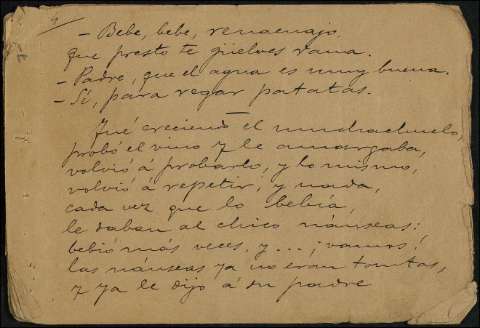 4
- Bebe, bebe, renacuajo,
que presto te güelves rana.
- Padre, que el agua es muy buena.
- Sí, para regar patatas.
Fué creciendo el muchachuelo,
probó el vino y le amargaba,
volvió á probarlo, y lo mismo,
volvió á repetir, y nada,
cada vez que lo bebía,
le daban al chico náuseas:
bebió más veces, y... ¡vamos!
las náuseas ya no eran tantas,
y ya le dijo á su padre